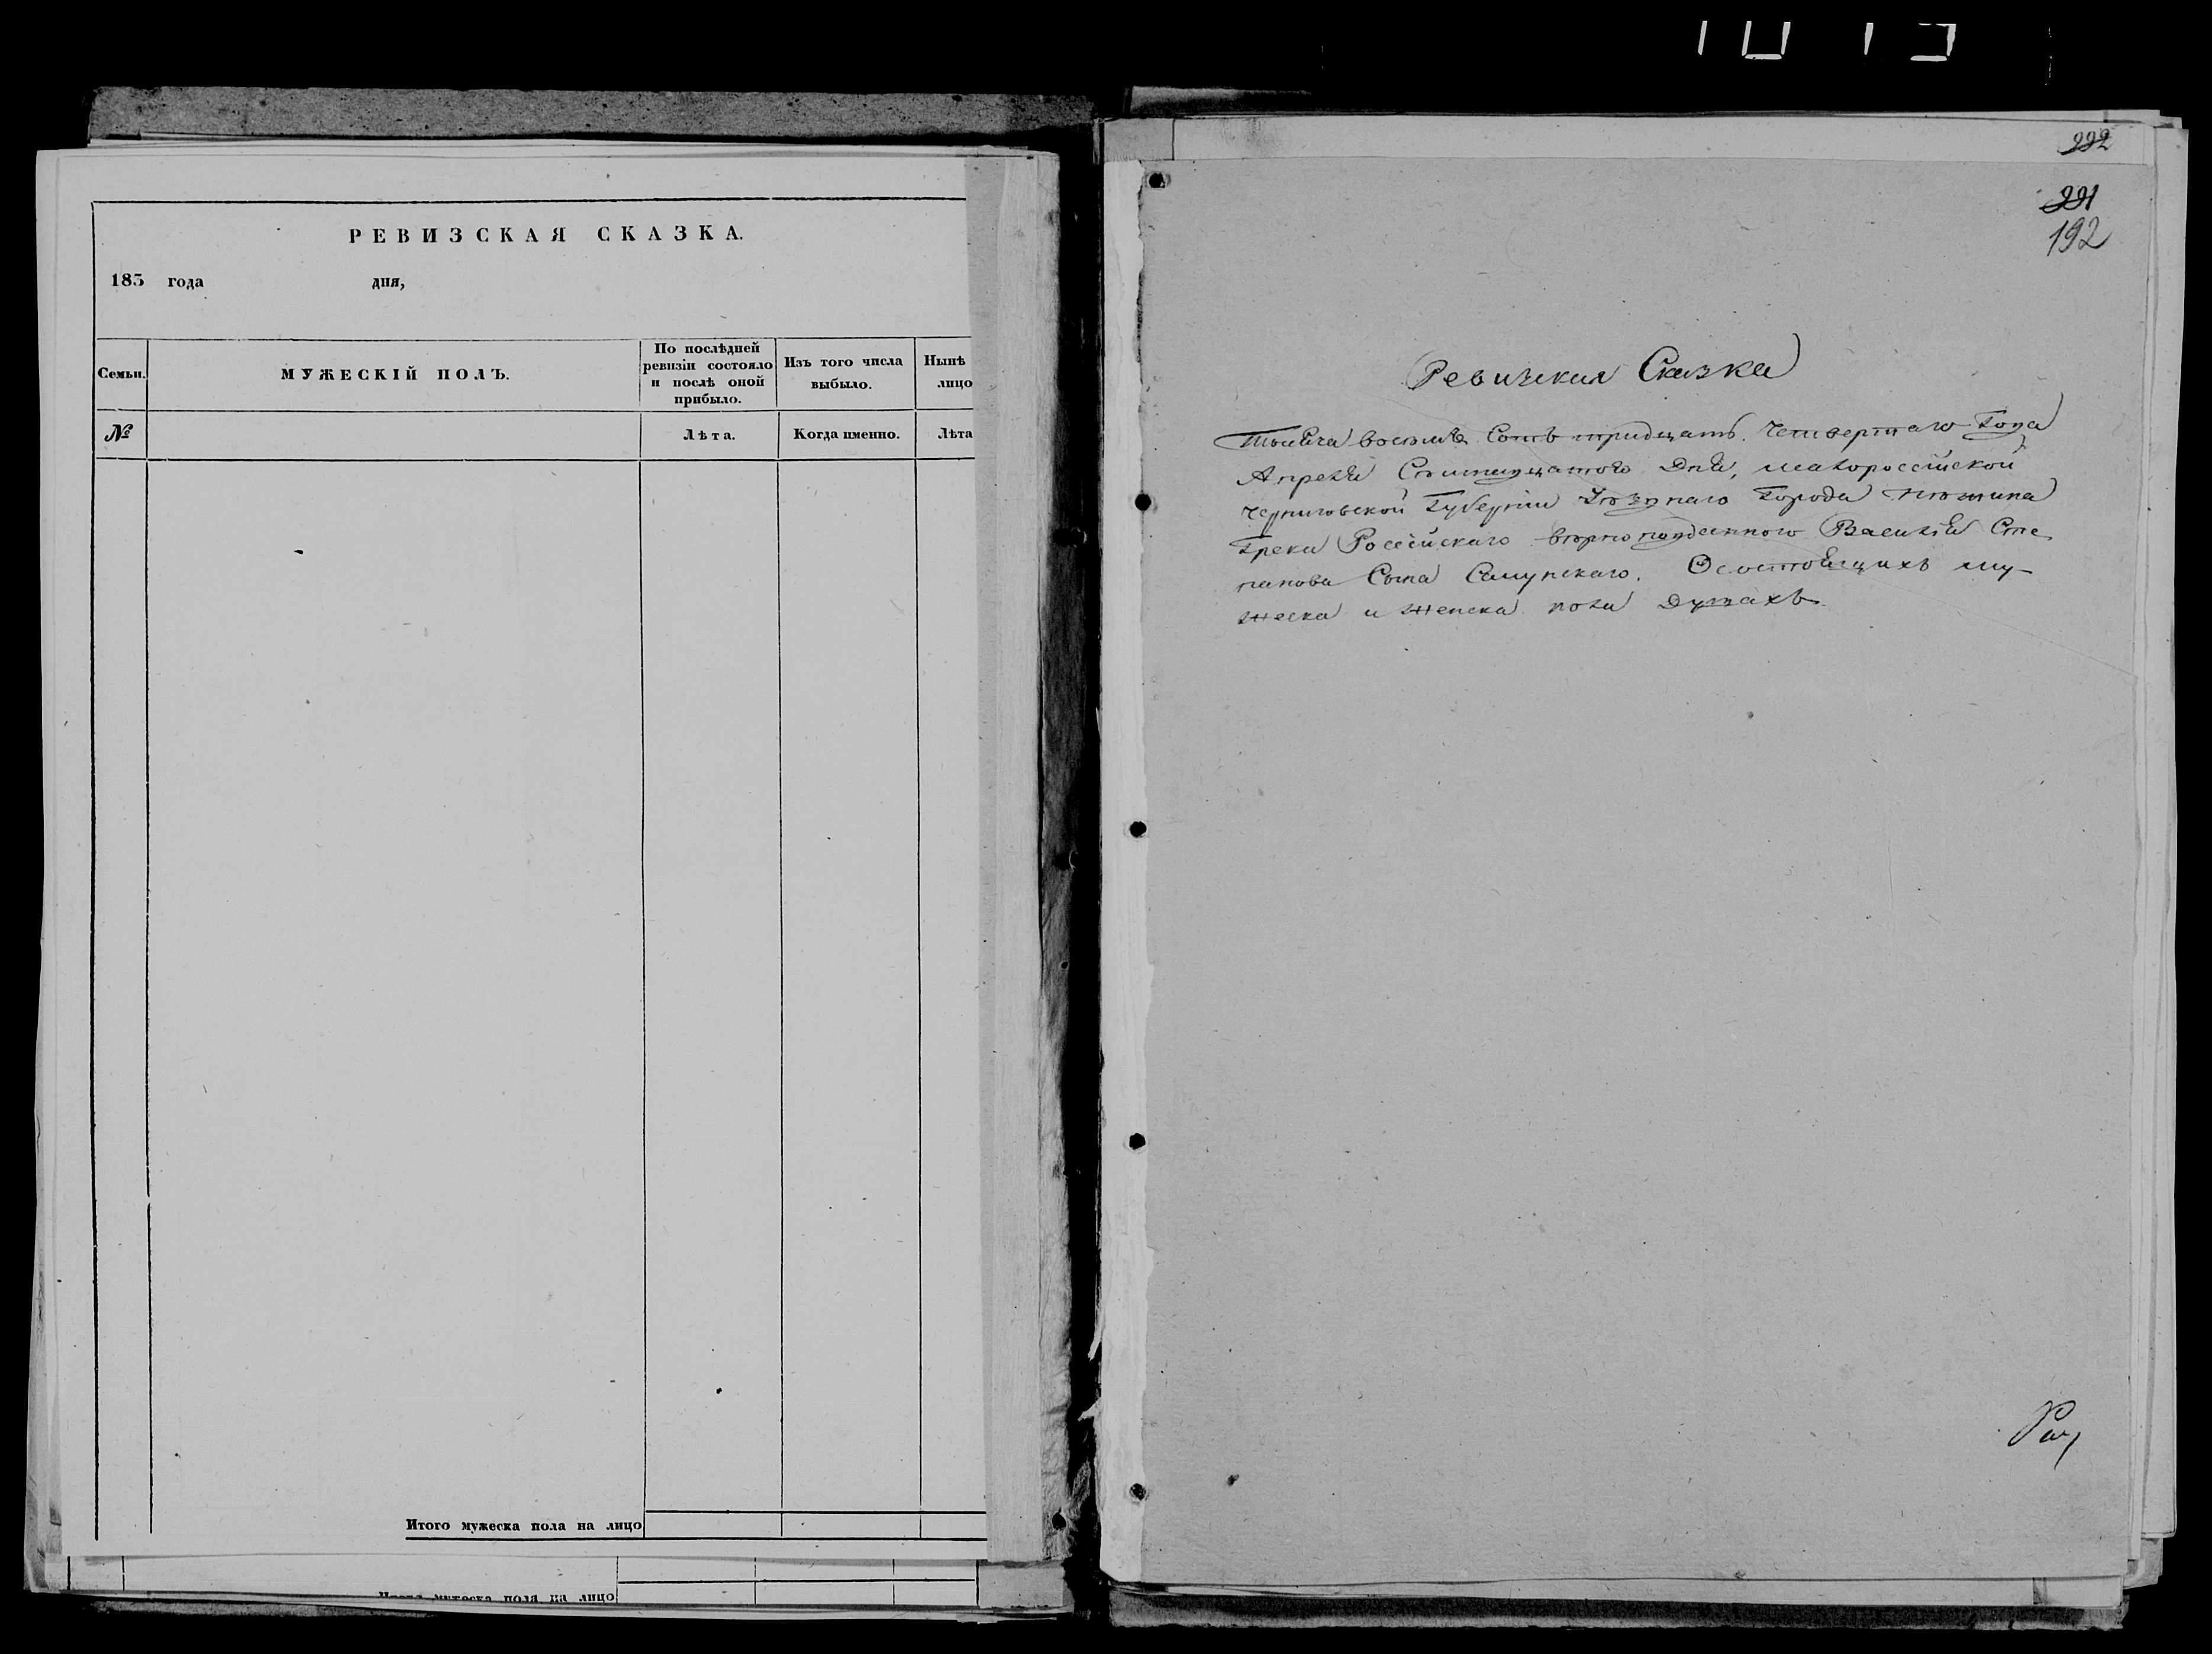 РЕВИЗСКАЯ СКАЗКА.
183 года дня,
Семьи.
МУЖЕСКІЙ ПОЛЪ.
По послѣдней
ревизіи состояло
и послѣ оной
прибыло.
Изъ того числа
выбыло.
Нынѣ
лицо
№
Лѣта.
Когда именно.
Лѣта
Итого мужеска пола на лицо
Итого мужеска пола на лицо
222
221
192
Ревизская Сказка
Тысяча восемь Сотъ тридцать четвертаго Года
Апреля дня, малороссійской
Черниговской Губерніи Уѣзднаго Города Нѣжина
Грека Россійскаго вѣрноподданного Василія Сте
панова Сына О состоящихъ му-
жеска и женска пола душахъ